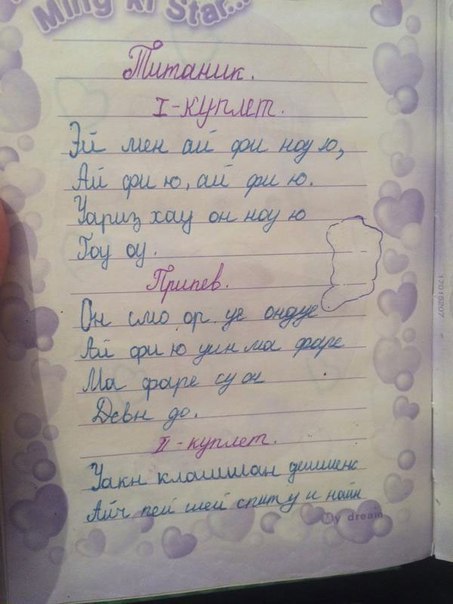 Ming ki Star...
Титаник.
I-куплет.
Эй мен ай фи ною,
Ай фи ю, ай фи ю.
Уариз хау он ноу ю
Гоу оу.
Припев.
Он смо ор уе ондуе
Ай фи ю уин ма фаре
Ма фаре су он
Девн до.
II-куплет.
Уакн клашшан дешиенс
Айч пей шей спиту и найн
My dream
17016207